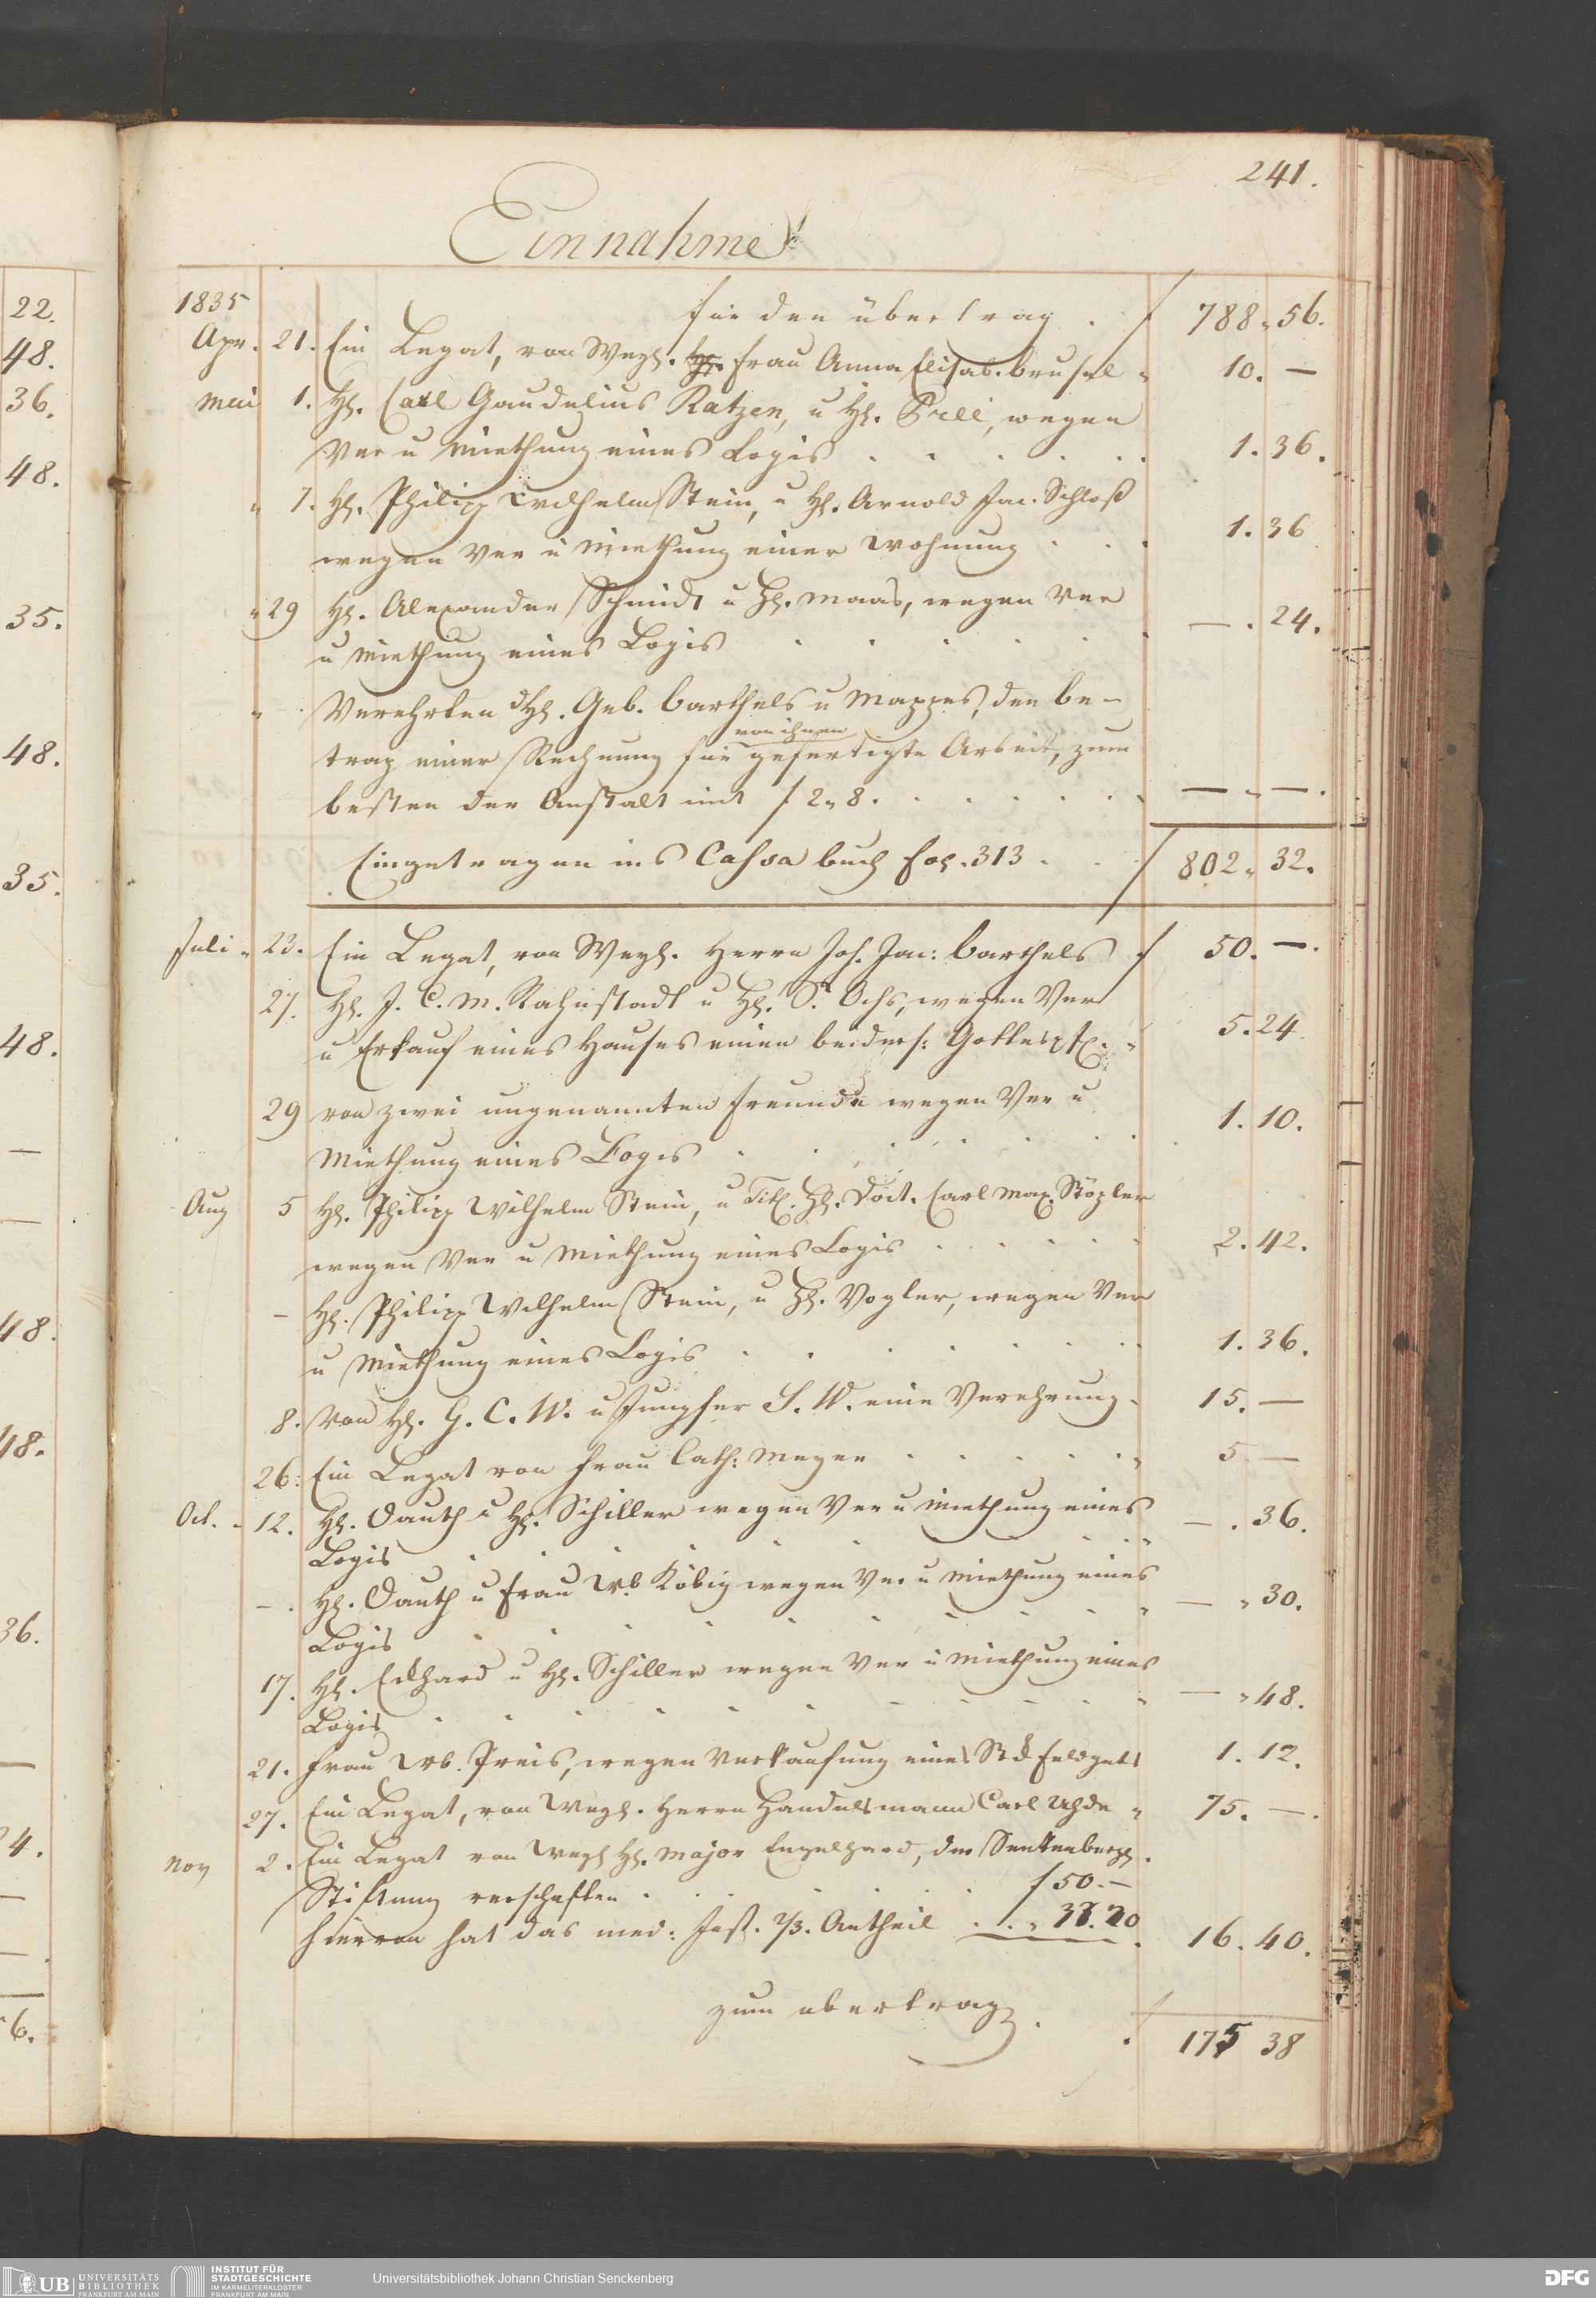 241.
Einnahme
1835 für den übertrag . f 788 " 56.
Apr. 21. Ein Legat, von Wegl. Frau Anna Elisab. " 10. —
Mai 1. Hl. Carl Gaudelius Ratzen, u Hl. Prell, wegen
Ver u Miethung eines Logis . . . . . 1. 36.
" 7. Hl. Philipp Wilhelm Stein, u Hl. Arnold Jac. Schloß
wegen Ver u Miethung einer Wohnung . . . 1. 36
" 29 Hl. Alexander Schmidt u Hl. Maas, wegen Ver
u Miethung eines Logis . . . . . . — . 24.
" Verehrten dHl. Geb. Barthels u Mappes, den be-
von ihnen
trag einer Rechnung für gefertigte Arbeit, zum
besten der Anstalt mit f 2 " 8 . . . . . . — " — .
Eingetragen ins Cassa buch fol. 313 . . f 802 " 32.
Juli " 23. Ein Legat, von Wegl. Herrn Joh. Jac: Barthels f 50. — .
27. Hl. J. C. M. u Hl. Ochs, wegen Ver
u Erkauf eines Hauses einen beiders: " 5. 24
29 von zwei ungenannten Freunde wegen Ver u
Miethung eines Logis . . . . . . . 1. 10.
Aug 5 Hl. Philipp Wilhelm Stein, u Tit. Hl. Doct. Carl Max. Stögler
wegen Ver u Miethung eines Logis . . . . " 2. 42.
— Hl. Philipp Wilhelm Stein, u Hl. Vogler, wegen Ver
u Miethung eines Logis . . . . . . . 1. 36.
8. Von Hl. G. C. W. u Jungfer S. W. eine Verehrung . 15. —
26: Ein Legat von Frau Cath: Meyer . . . . . " 5 —
Oct. " 12. Hl. Dauth u Hl. Schiller wegen Ver u Miethung eines
Logis . . . . . . . . " — . 36.
— . Hl. Dauth u Frau Wb. Köbig wegen Ver u Miethung eines
Logis . . . . . . . . " — " 30.
17. Hl. Eckhard u Hl. Schiller wegen Ver u Miethung eines
Logis . . . . . . . . " — " 48.
21. Frau Wb. Preis, wegen Verkaufung eines Stck 1. 12.
27. Ein Legat, von Wegl. Herrn Handelsmann Carl Uhde " 75. — .
Nov 2. Ein Legat von Wegl Hl. Major Engelhard, der Senkenbergl.
Stiftung verschaften . . . . . f 50. —
hiervon hat das med: Inst. 2/3. Antheil . . . " 33. 20 . 16. 40.
zum übertrag . f 175 38
22.
48.
36.
48.
35.
48.
35.
48.
—
—
48.
48.
36.
—
4.
—
—
6.
UB UNIVERSITÄTS
BIBLIOTHEK
FRANKFURT AM MAIN
INSTITUT FÜR
STADTGESCHICHTE
IM KARMELITERKLOSTER
FRANKFURT AM MAIN
Universitätsbibliothek Johann Christian Senckenberg
DFG